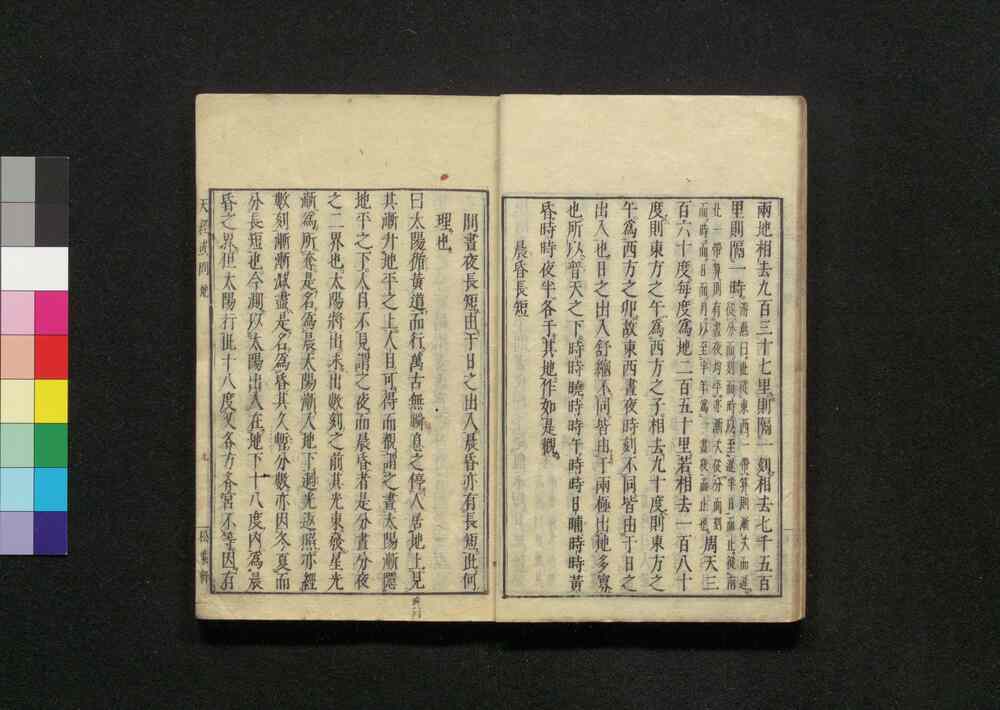 兩地相去九百三十七里則隔一刻相去七千五百
里則隔一時
北一帶算則有晝夜均平亦漸大從分而刻
而時而日而月以至半年爲一晝夜而止也
周天三
百六十度每度爲地二百五十里若相去一百八十
度則東方之午爲西方之子相去九十度則東方之
午爲西方之卯故東西晝夜時刻不同皆由于日之
出入也日之出入舒縮不同皆由于兩極出地多寡
也所以普天之下時時曉時時午時時日晡時時黃
昏時時夜半各于其地作如是觀
晨昏長短
問晝夜長短由于日之出入晨昏亦有長短此何
理也
曰太陽循黃道而行萬古無瞬息之停人居地上見
其漸升地平之上人目可得而觀謂之晝太陽漸隱
地平之下人目不見謂之夜而晨昏者是分晝分夜
之二界也太陽將出未出數刻之前其光東發星光
漸爲所奪是名爲晨太陽漸入地下迴光返照亦經
數刻漸漸漸盡是名爲昏其久暫分數亦因冬夏而
分長短也今測以太陽出入在地下十八度內爲晨
昏之界但太陽行此十八度又各方各宮不等因有
天經或問
松葉軒